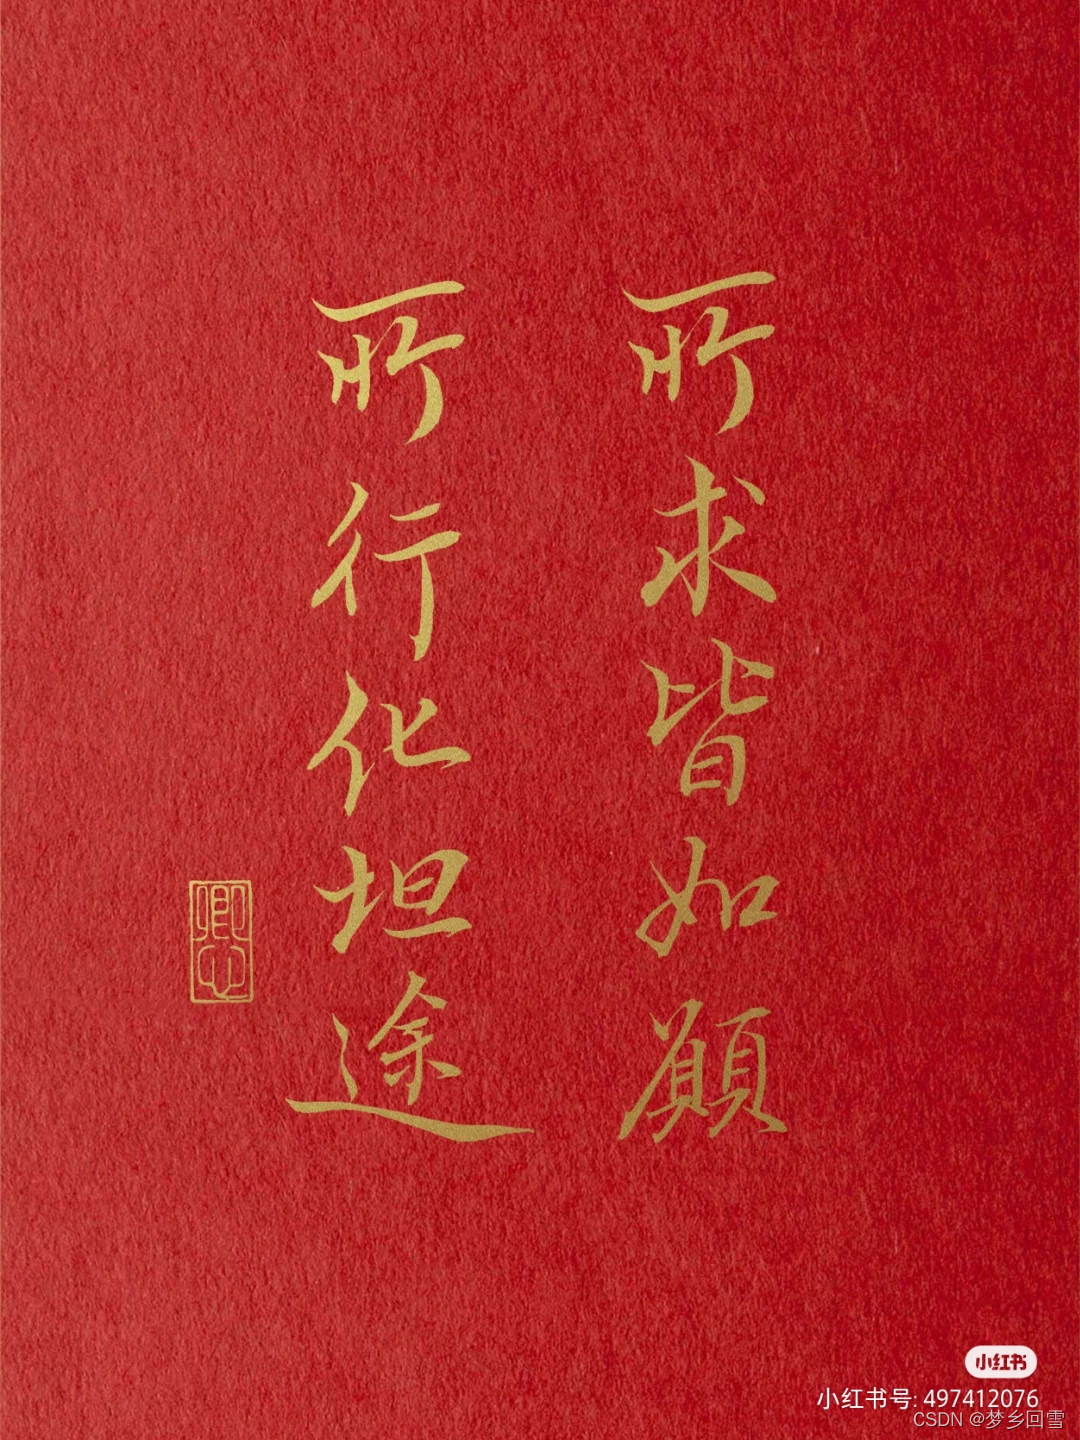 所求皆如願
所行化坦途
卿心
小红书
小红书号: 497412076
CSDN @梦乡回雪